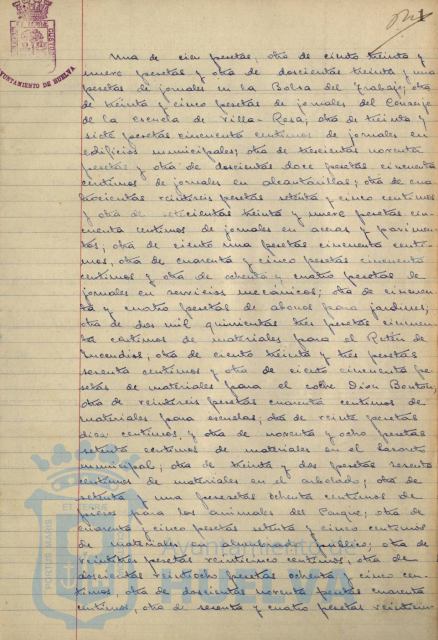 AYUNTAMIENTO DE HUELVA
Una de cien pesetas, otra de ciento treinta y
nueve pesetas y otra de doscientas treinta y una
pesetas de jornales en la Bolsa del Trabajo; otra
de treinta y cinco pesetas de jornales del Conserje
de la escuela de Villa-Rosa; otra de treinta y
siete pesetas cincuenta centimos de jornales en
edificios municipales; otra de trescientas noventa
pesetas y otra de doscientas doce pesetas cincuenta
centimos de jornales en alcantarillas; otra de cua
trocientas veintiseis pesetas setenta y cinco centimos
y otra de setecientas treinta y nueve pesetas cin-
cuenta centimos de jornales en aceras y pavimen-
tos; otra de ciento una pesetas cincuenta centi-
mos, otra de cuarenta y cinco pesetas cincuenta
centimos y otra de ochenta y cuatro pesetas de
jornales en servicios mecánicos; otra de cincuen-
ta y cuatro pesetas de abonos para jardines;
otra de dos mil quinientas tres pesetas cincuen-
ta centimos de materiales para el Retén de
Incendios; otra de ciento treinta y tres pesetas
sesenta centimos y otra de ciento cincuenta pe-
setas de materiales para el coche Dion Bouton;
otra de veintiseis pesetas cuarenta centimos de
materiales para escuelas; otra de veinte pesetas
diez centimos, y otra de noventa y ocho pesetas
setenta centimos de materiales en el
municipal; otra de treinta y dos pesetas sesenta
centimos de materiales en el arbolado; otra de
setenta y una pesesetas ochenta centimos de
para los animales del Parque; otra de
cuarenta y cinco pesetas setenta y cinco centimos
de materiales en alumbrado público; otra de
veintitres pesetas veinticinco centimos, otra de
doscientas veintiocho pesetas ochenta y cinco cen-
timos, otra de doscientas noventa pesetas cuarenta
centimos, otra de sesenta y cuatro pesetas veinticin-
PORTUS MARIS
ET TERRE
Ayuntamiento de
HUELVA